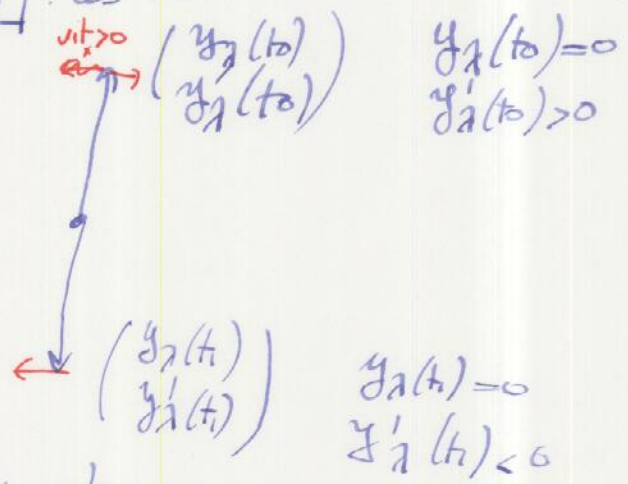 vit>0
(y_λ(t₀)
y'_λ(t₀))
y_λ(t₀)=0
y'_λ(t₀)>0
(y_λ(t₁)
y'_λ(t₁))
y_λ(t₁)=0
y'_λ(t₁)<0